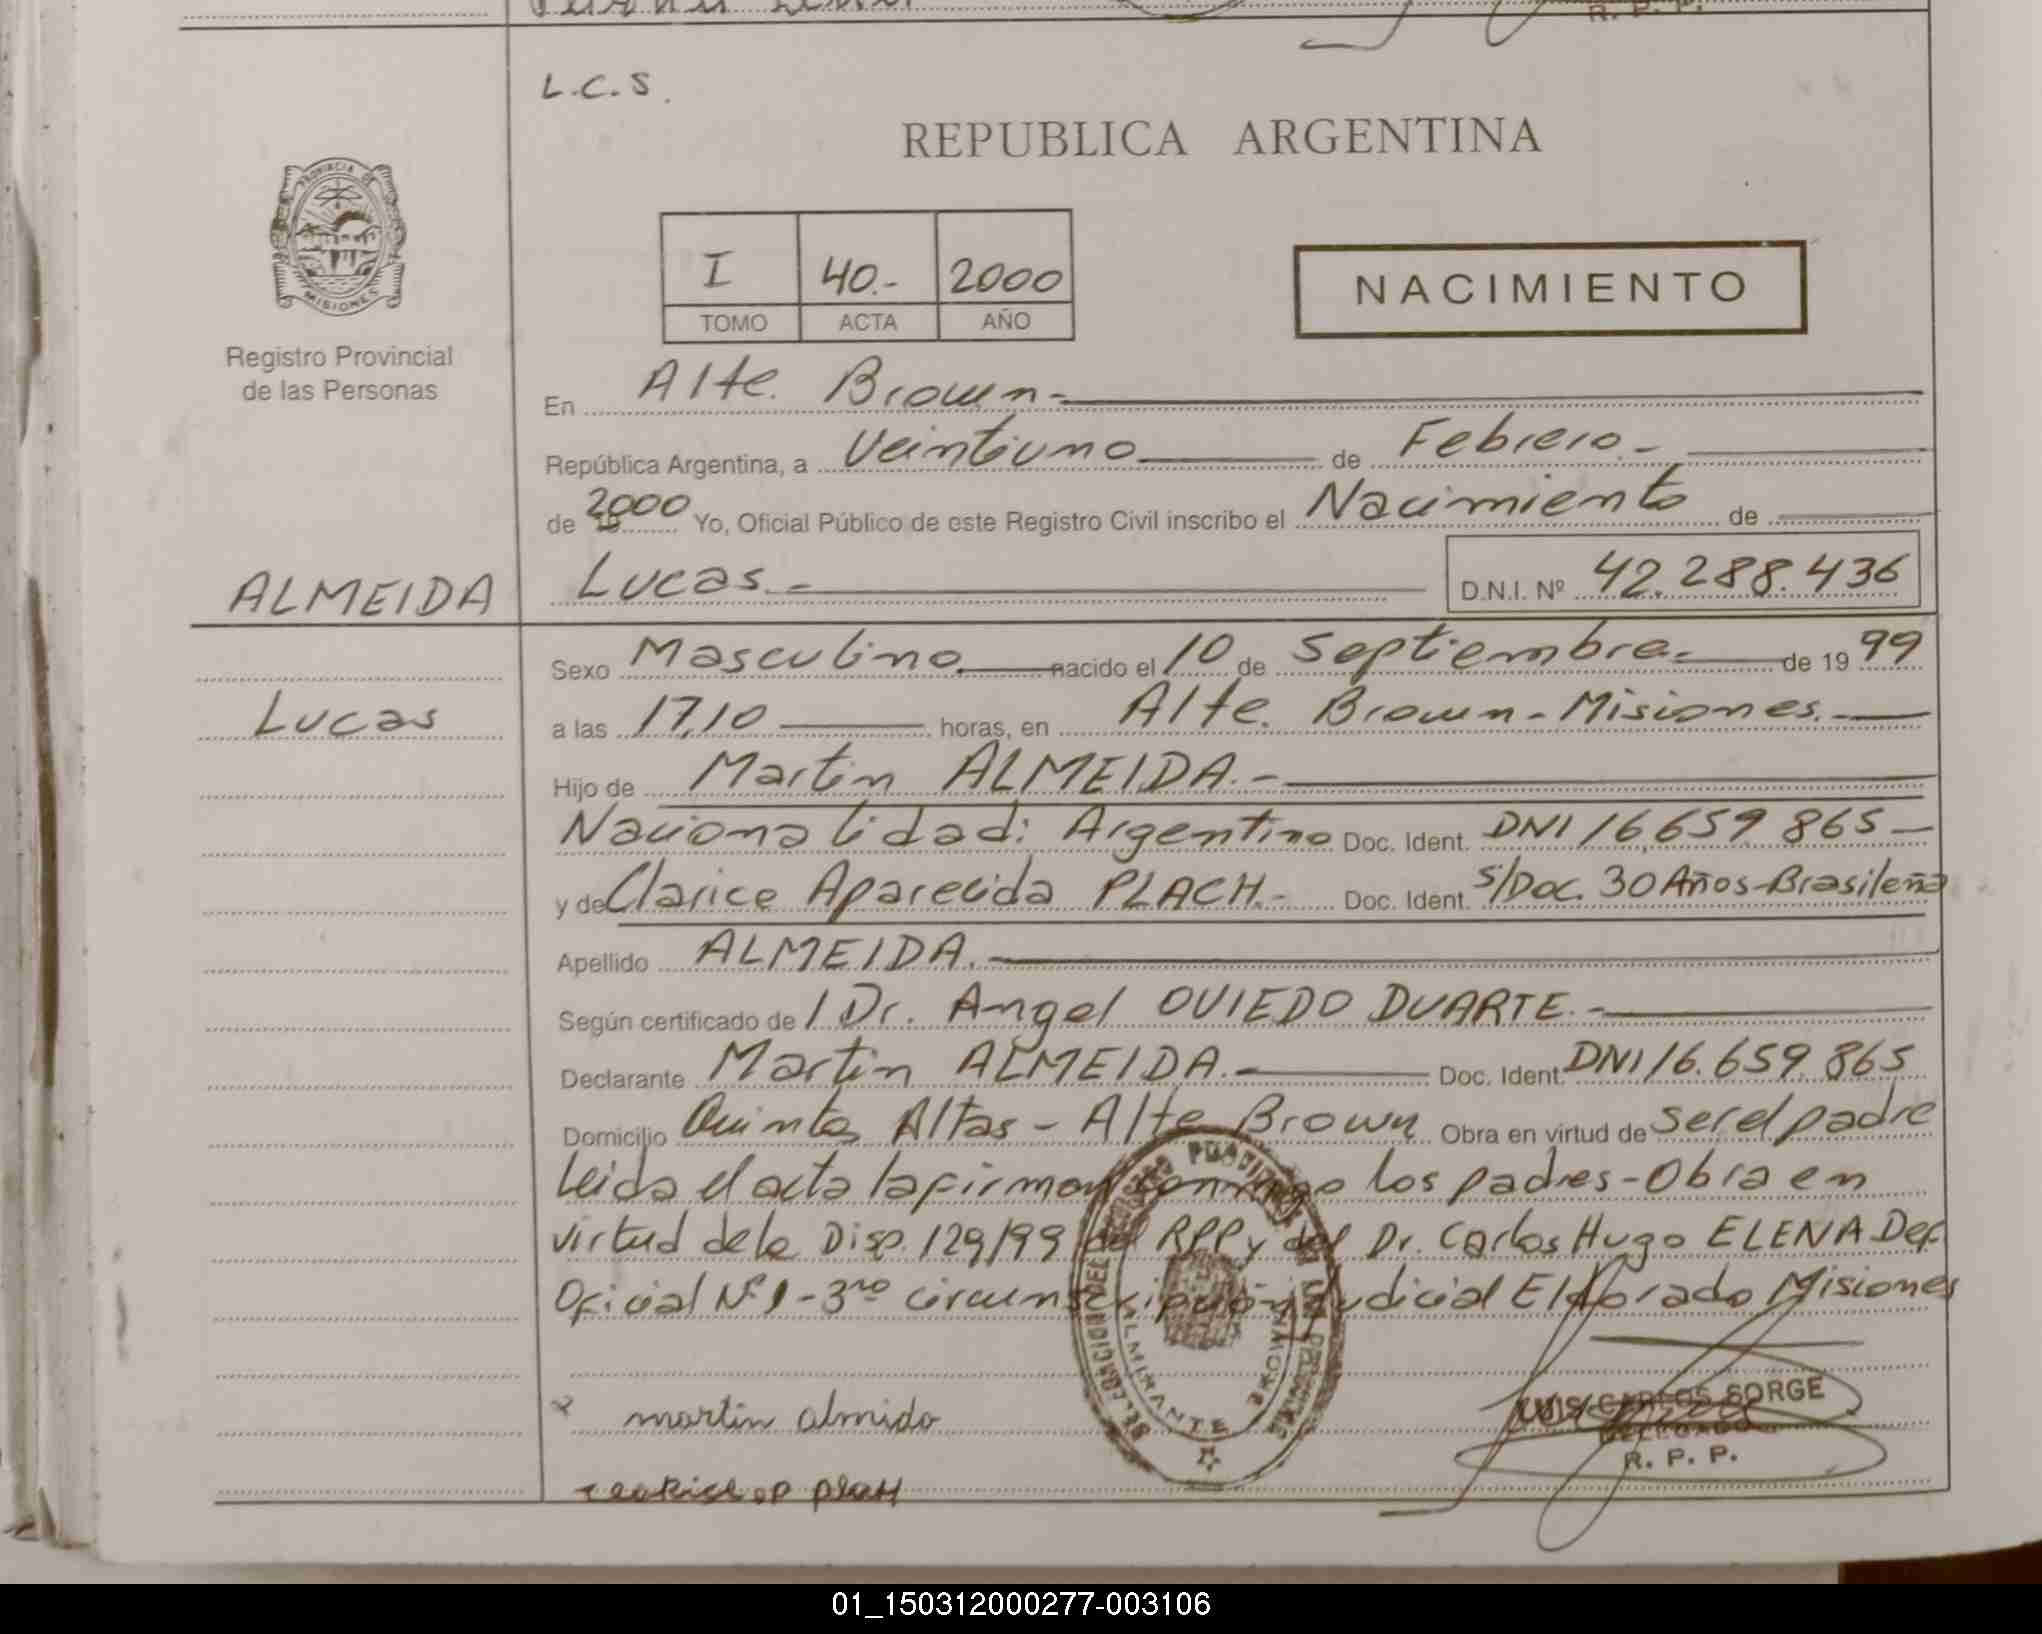 R. P. P.
L.C.S.
REPUBLICA ARGENTINA
PROVINCIA DE MISIONES
Registro Provincial
de las Personas
I 40.- 2000
TOMO ACTA AÑO
NACIMIENTO
En Alte. Brown.-
República Argentina, a Veintiuno de Febrero.-
de 19 2000 Yo, Oficial Público de este Registro Civil inscribo el Nacimiento de
ALMEIDA
Lucas.- D.N.I. Nº 42.288.436
Sexo Masculino nacido el 10 de Septiembre.- de 19 99
Lucas
a las 17,10 horas, en Alte. Brown-Misiones.-
Hijo de Martin ALMEIDA.-
Nacionalidad: Argentino Doc. Ident. DNI 16.659.865-
y de Clarice Aparecida PLACH.- Doc. Ident. S/Doc. 30 Años-Brasileña
Apellido ALMEIDA.-
Según certificado de / Dr. Angel OVIEDO DUARTE.-
Declarante Martin ALMEIDA.- Doc. Ident. DNI 16.659.865
Domicilio Quinta Altas - Alte Brown Obra en virtud de ser el padre
Leida el acta la firman conmigo los padres-Obra en
virtud de la Disp. 129/99 del RPP y del Dr. Carlos Hugo ELENA Def.
Oficial Nº 1 - 3ra circunscripción Judicial Eldorado Misiones
martin almida
ALMIRANTE BROWN
LUIS CARLOS SORGE
DELEGADO
R. P. P.
01_150312000277-003106